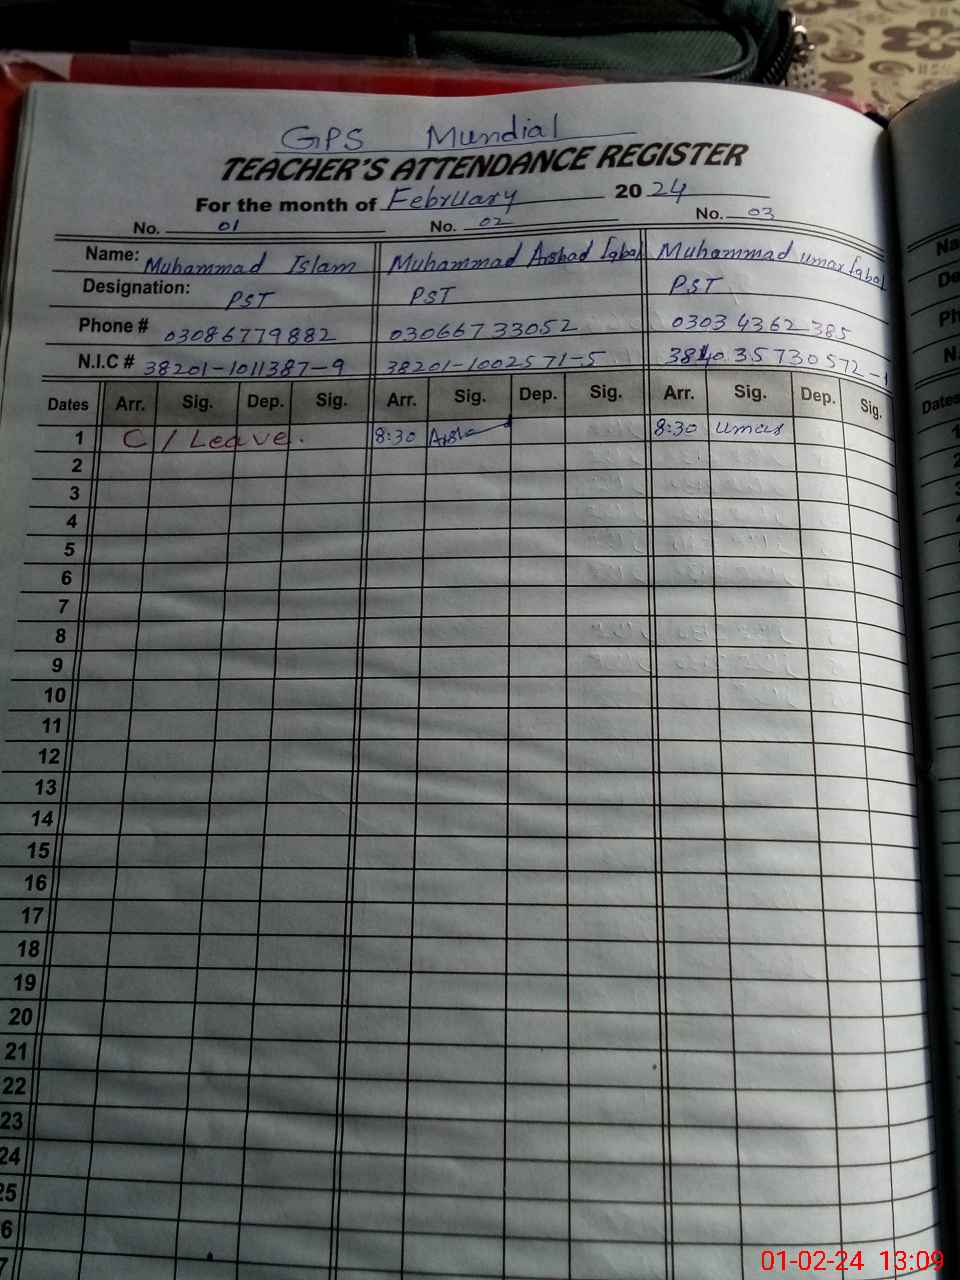 GPS Mundial
TEACHER'S ATTENDANCE REGISTER
For the month of February 2024
No. 01 No. 02 No. 03
Name: Muhammad Islam Muhammad Arshad Iqbal Muhammad umar Iqbal
Designation: PST PST PST
Phone # 03086779882 03066733052 03034362385
N.I.C # 38201-1011387-9 38201-1002571-5
Dates Arr. Sig. Dep. Sig. Arr. Sig. Dep. Sig. Arr. Sig. Dep. Sig. Dates
1 C/Leave. 8:30 Arsha 8:30 umar
2
3
4
5
6
7
8
9
10
11
12
13
14
15
16
17
18
19
20
21
22
23
24
25
6
7
01-02-24 13:09